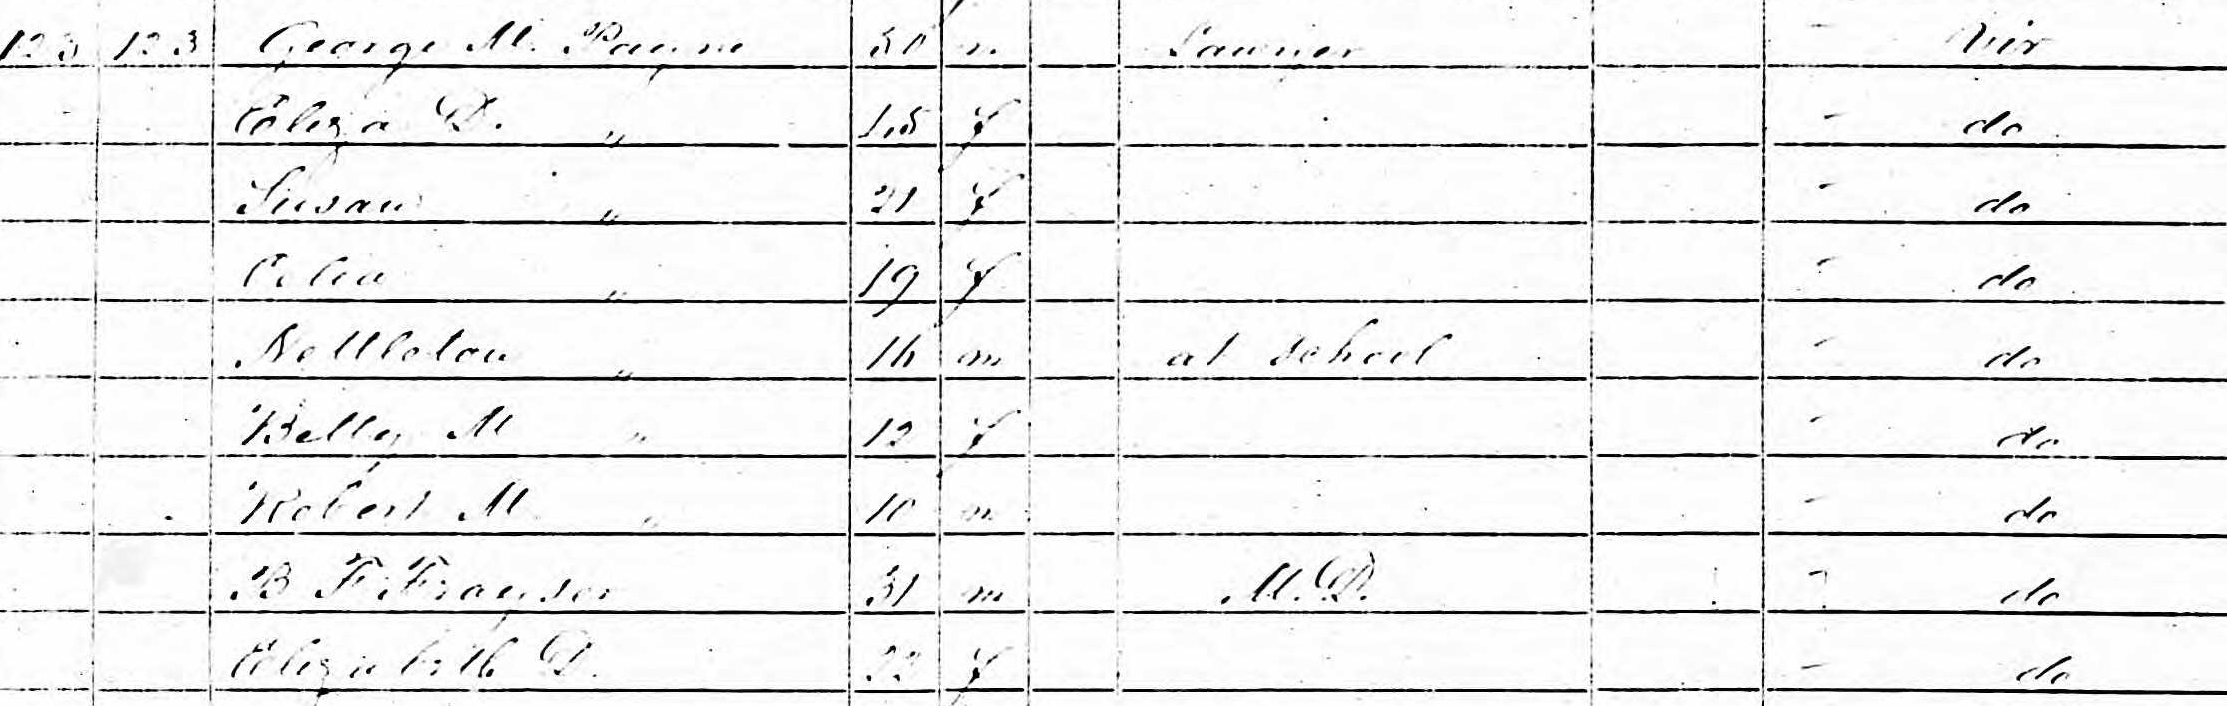 123 123 George M. Payne 50 m Lawyer Vir
Eliza D. " 45 f do
Susan " 21 f do
Celia " 19 f do
Nettleton " 16 m at school do
Betty M " 12 f do
Robert M " 10 m do
B F 31 m M.D. do
Elizabeth D. 22 f do